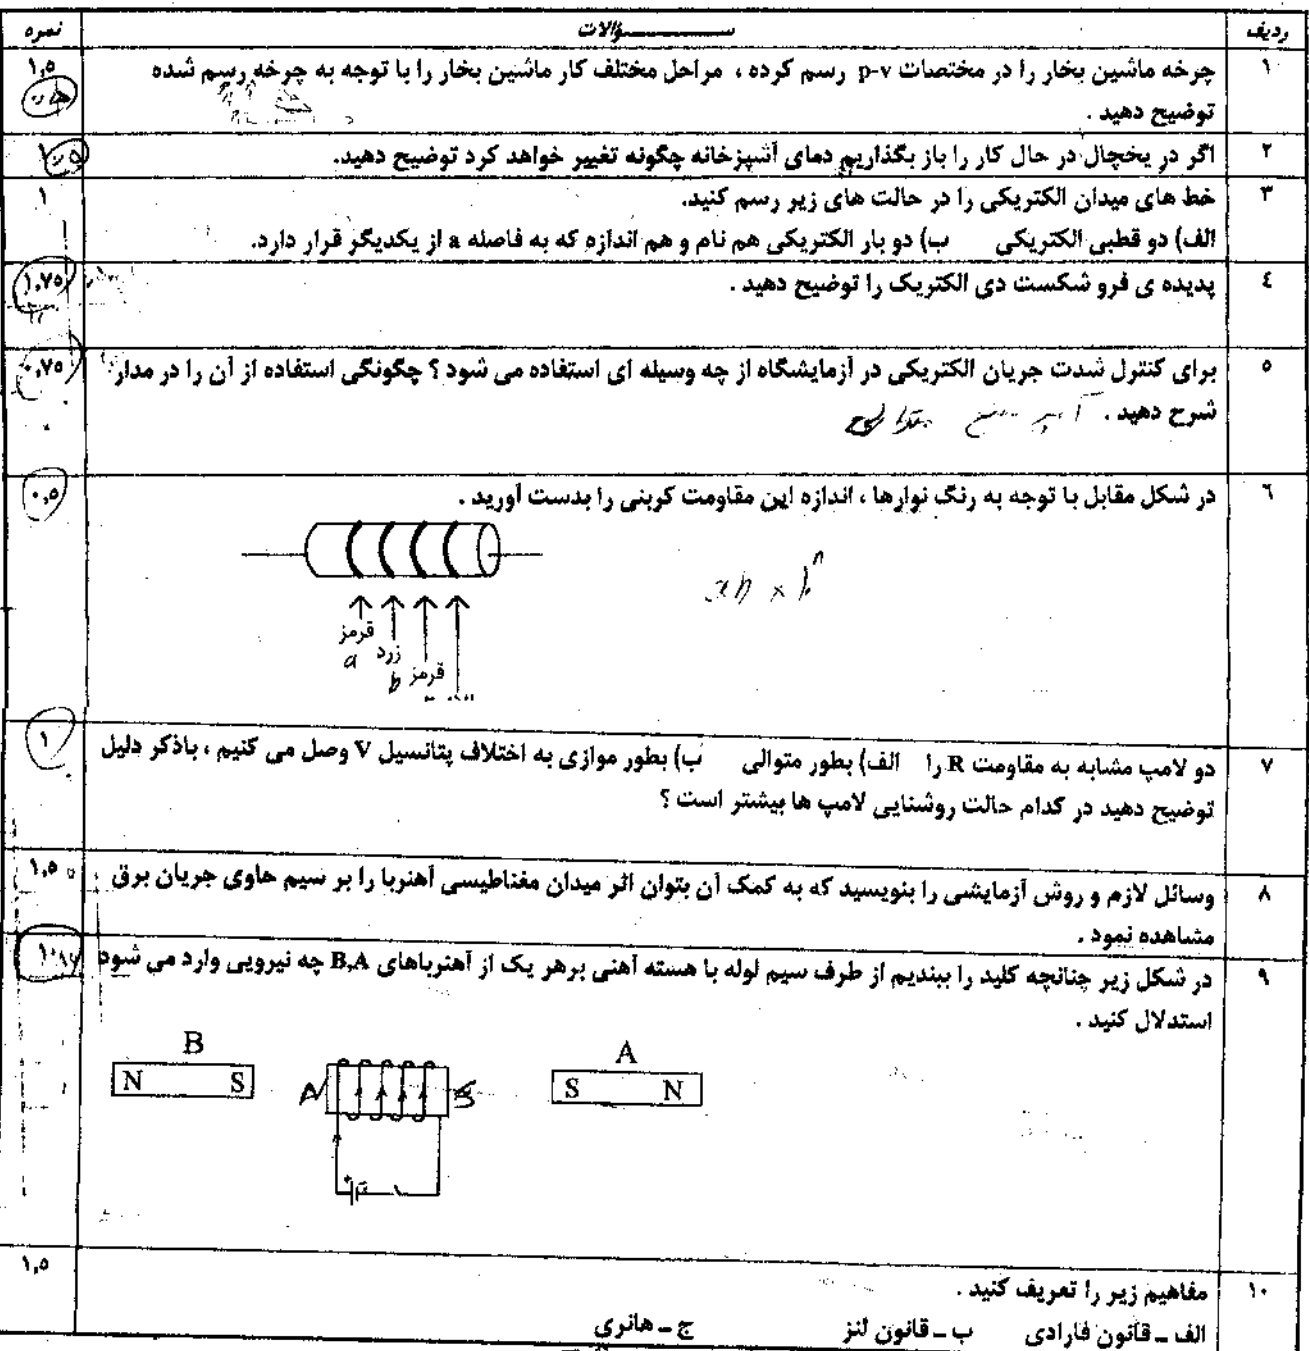 ردیف سؤالات نمره
۱ چرخه ماشین بخار را در مختصات p-v رسم کرده ، مراحل مختلف کار ماشین بخار را با توجه به چرخه رسم شده ۱,۵
توضیح دهید .
۲ اگر در یخچال در حال کار را باز بگذاریم دمای آشپزخانه چگونه تغییر خواهد کرد توضیح دهید.
۳ خط های میدان الکتریکی را در حالت های زیر رسم کنید. ۱
الف) دو قطبی الکتریکی ب) دو بار الکتریکی هم نام و هم اندازه که به فاصله a از یکدیگر قرار دارد.
٤ پدیده ی فرو شکست دی الکتریک را توضیح دهید . ۱,۷۵
۵ برای کنترل شدت جریان الکتریکی در آزمایشگاه از چه وسیله ای استفاده می شود ؟ چگونگی استفاده از آن را در مدار ۰,۷۵
شرح دهید .
٦ در شکل مقابل با توجه به رنگ نوارها ، اندازه این مقاومت کربنی را بدست آورید . ۰,۵
قرمز
a
زرد
b
قرمز
۷ دو لامپ مشابه به مقاومت R را الف) بطور متوالی ب) بطور موازی به اختلاف پتانسیل V وصل می کنیم ، باذکر دلیل ۱
توضیح دهید در کدام حالت روشنایی لامپ ها بیشتر است ؟
۸ وسائل لازم و روش آزمایشی را بنویسید که به کمک آن بتوان اثر میدان مغناطیسی آهنربا را بر سیم حاوی جریان برق ۱,۵
مشاهده نمود .
۹ در شکل زیر چنانچه کلید را ببندیم از طرف سیم لوله با هسته آهنی برهر یک از آهنرباهای B,A چه نیرویی وارد می شود
استدلال کنید .
B A
N S N S S N
۱۰ مفاهیم زیر را تعریف کنید . ۱,۵
الف ـ قانون فارادی ب ـ قانون لنز ج ـ هانری